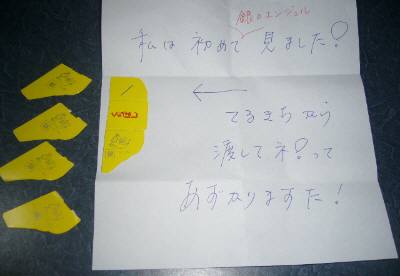 銀のエンジェル
私は初めて見ました!
←
てるきちから
渡してネ!って
あずかりますた!